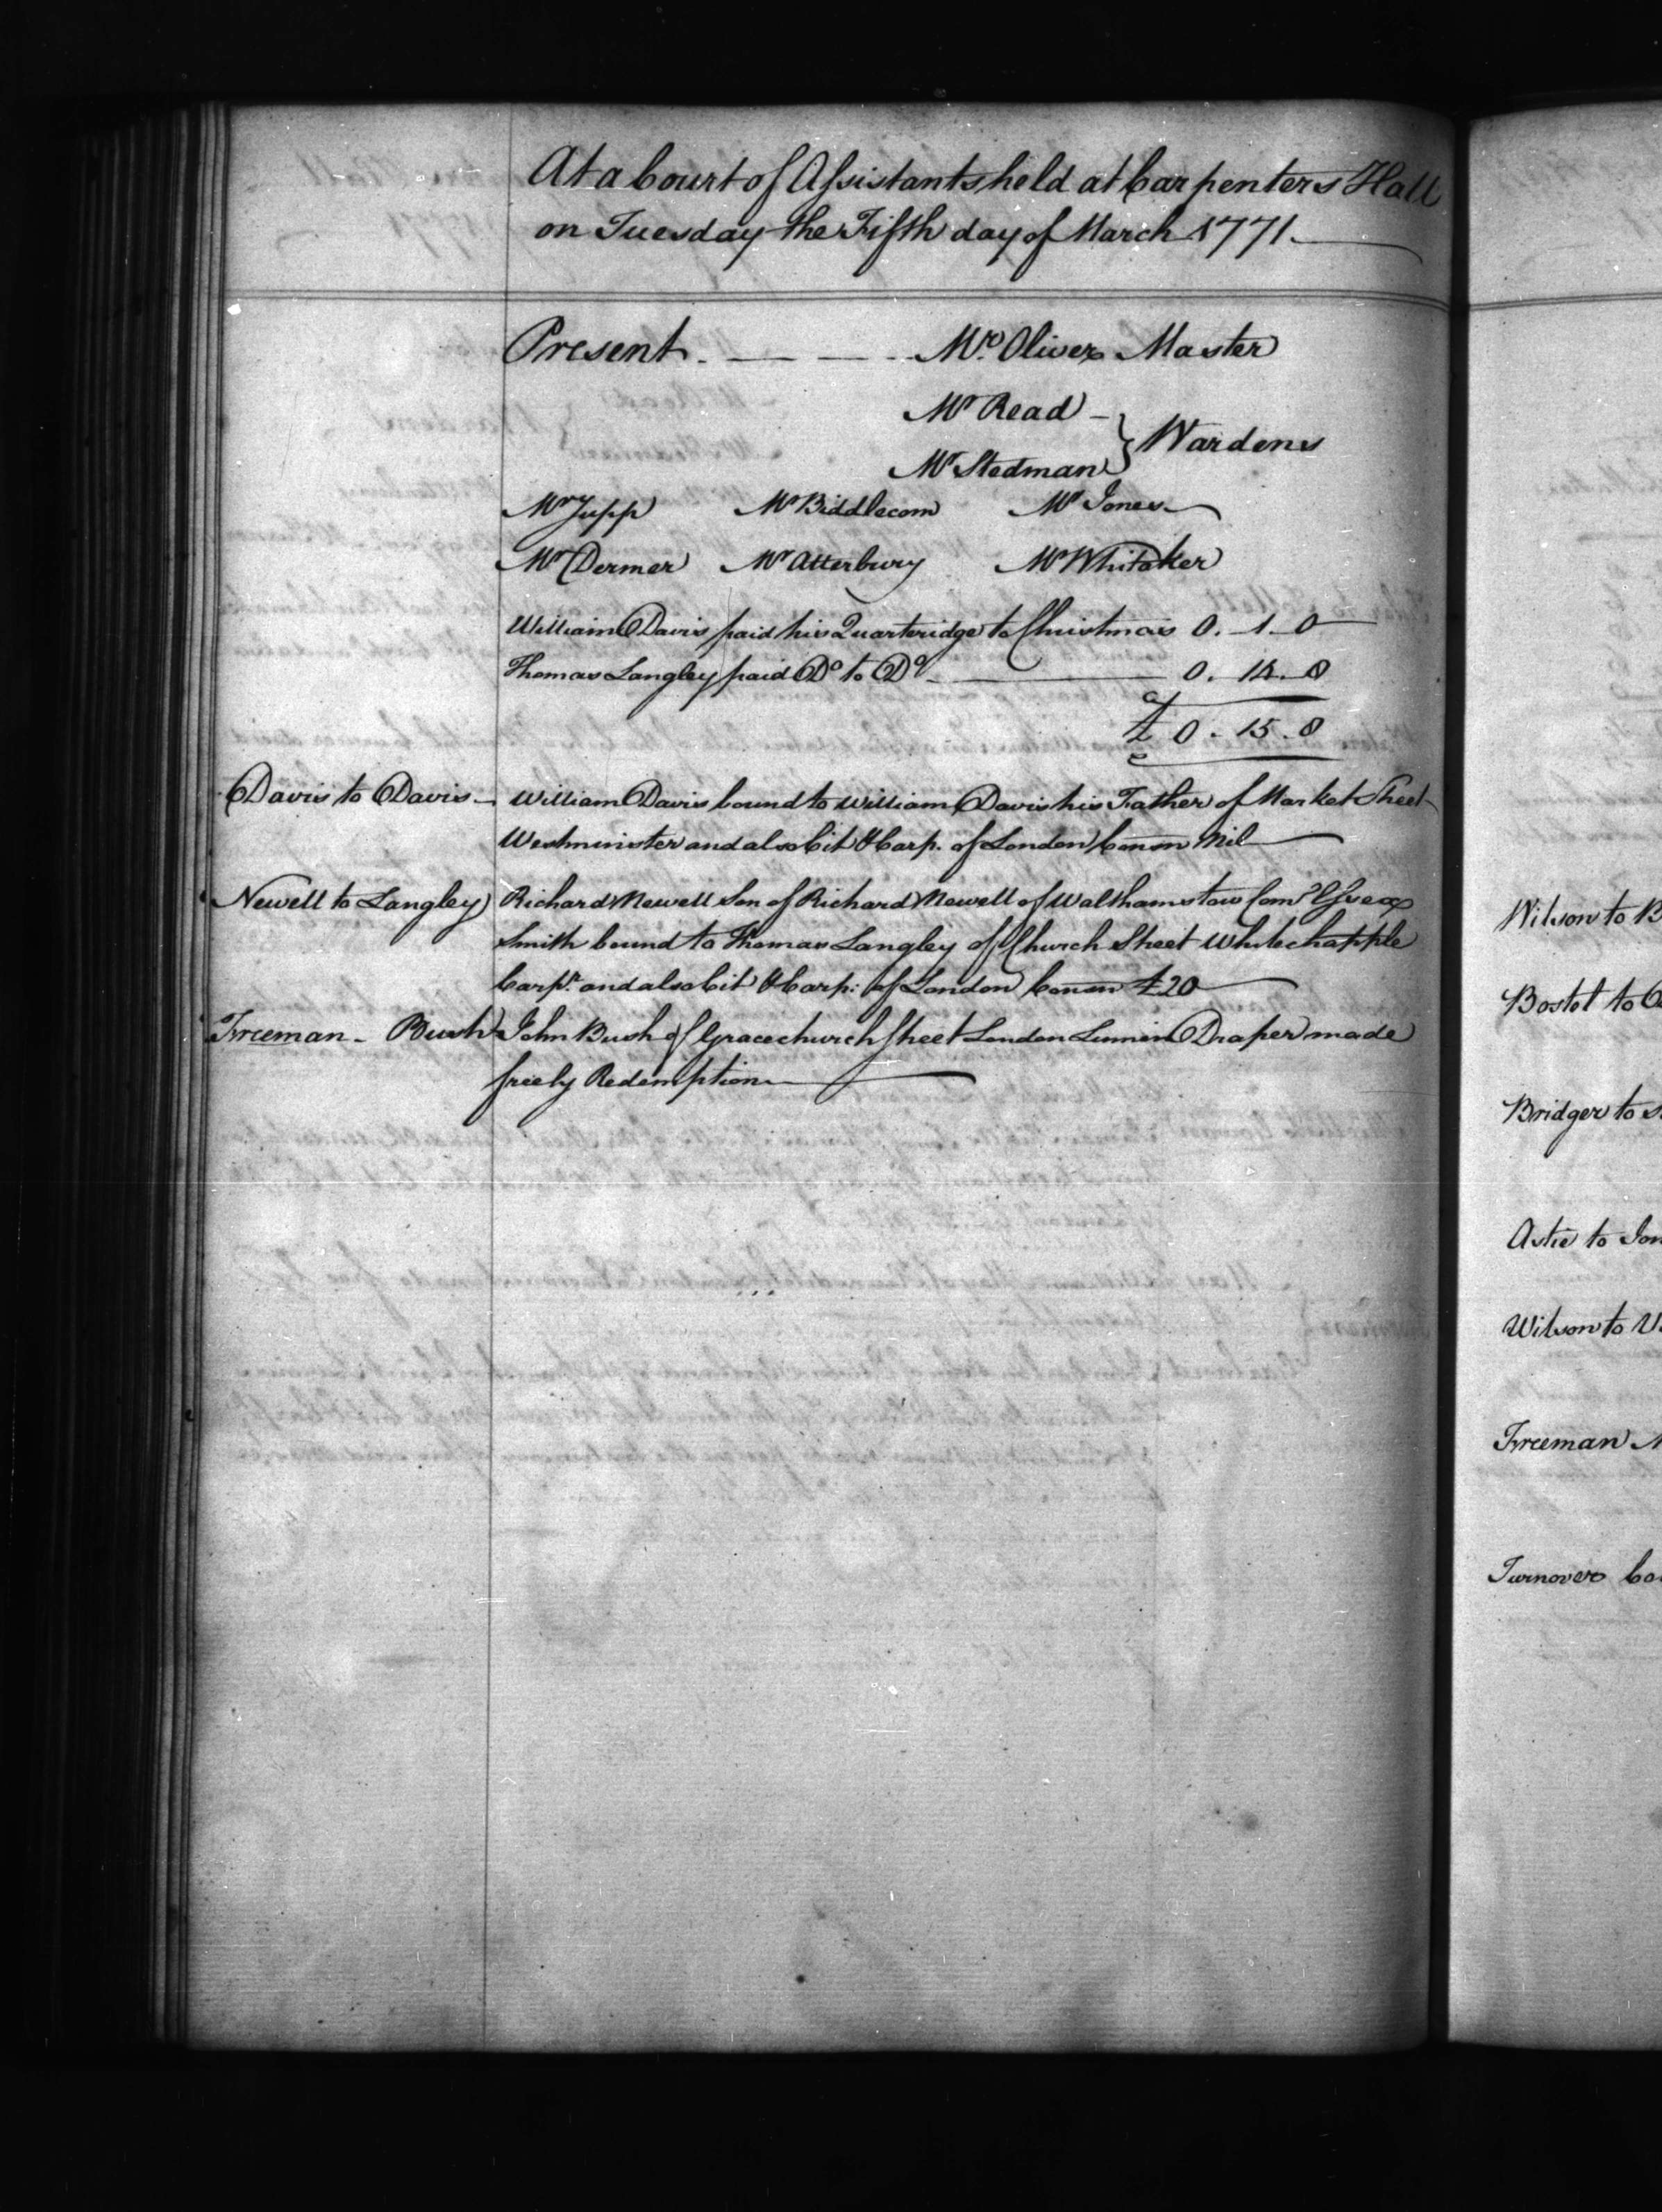 At a Court of Assistants held at Carpenters Hall
on Tuesday the Fifth day of March 1771.
Present. — — — Mr. Oliver Master
Mr Read
Mr Stedman } Wardens
Mr Jupp Mr Biddlecom Mr Jones
Mr Dermer Mr Atterbury Mr Whitaker
William Davis paid his Quarteridge to Christmas 0. 1. 0
Thomas Langley paid Do to Do 0. 14. 8
£ 0. 15. 8
Davis to Davis William Davis bound to William Davis his Father of Market Street
Westminster and also Cit & Carp. of London Conson Nil
Newell to Langley Richard Newell Son of Richard Newell of Walthamstow Com Essex
Smith bound to Thomas Langley of Church Street Whitechapple
Carpr. and also Cit & Carp: of London Conson £20
Freeman Bush John Bush of Gracechurch Street London Linnen Draper made
free by Redemption
Wilson to B
Bostol to
Bridger to
Astie to Jon
Wilson to
Freeman
Turnover Co